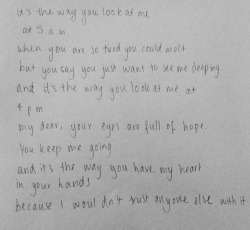 it's the way you look at me
at 5 a.m.
when you are so tired you could melt
but you say you just want to see me sleeping.
and it's the way you look at me at
4 p.m
my dear, your eyes are full of hope.
You keep me going
and it's the way you have my heart
in your hands
because I would n't trust anyone else with it